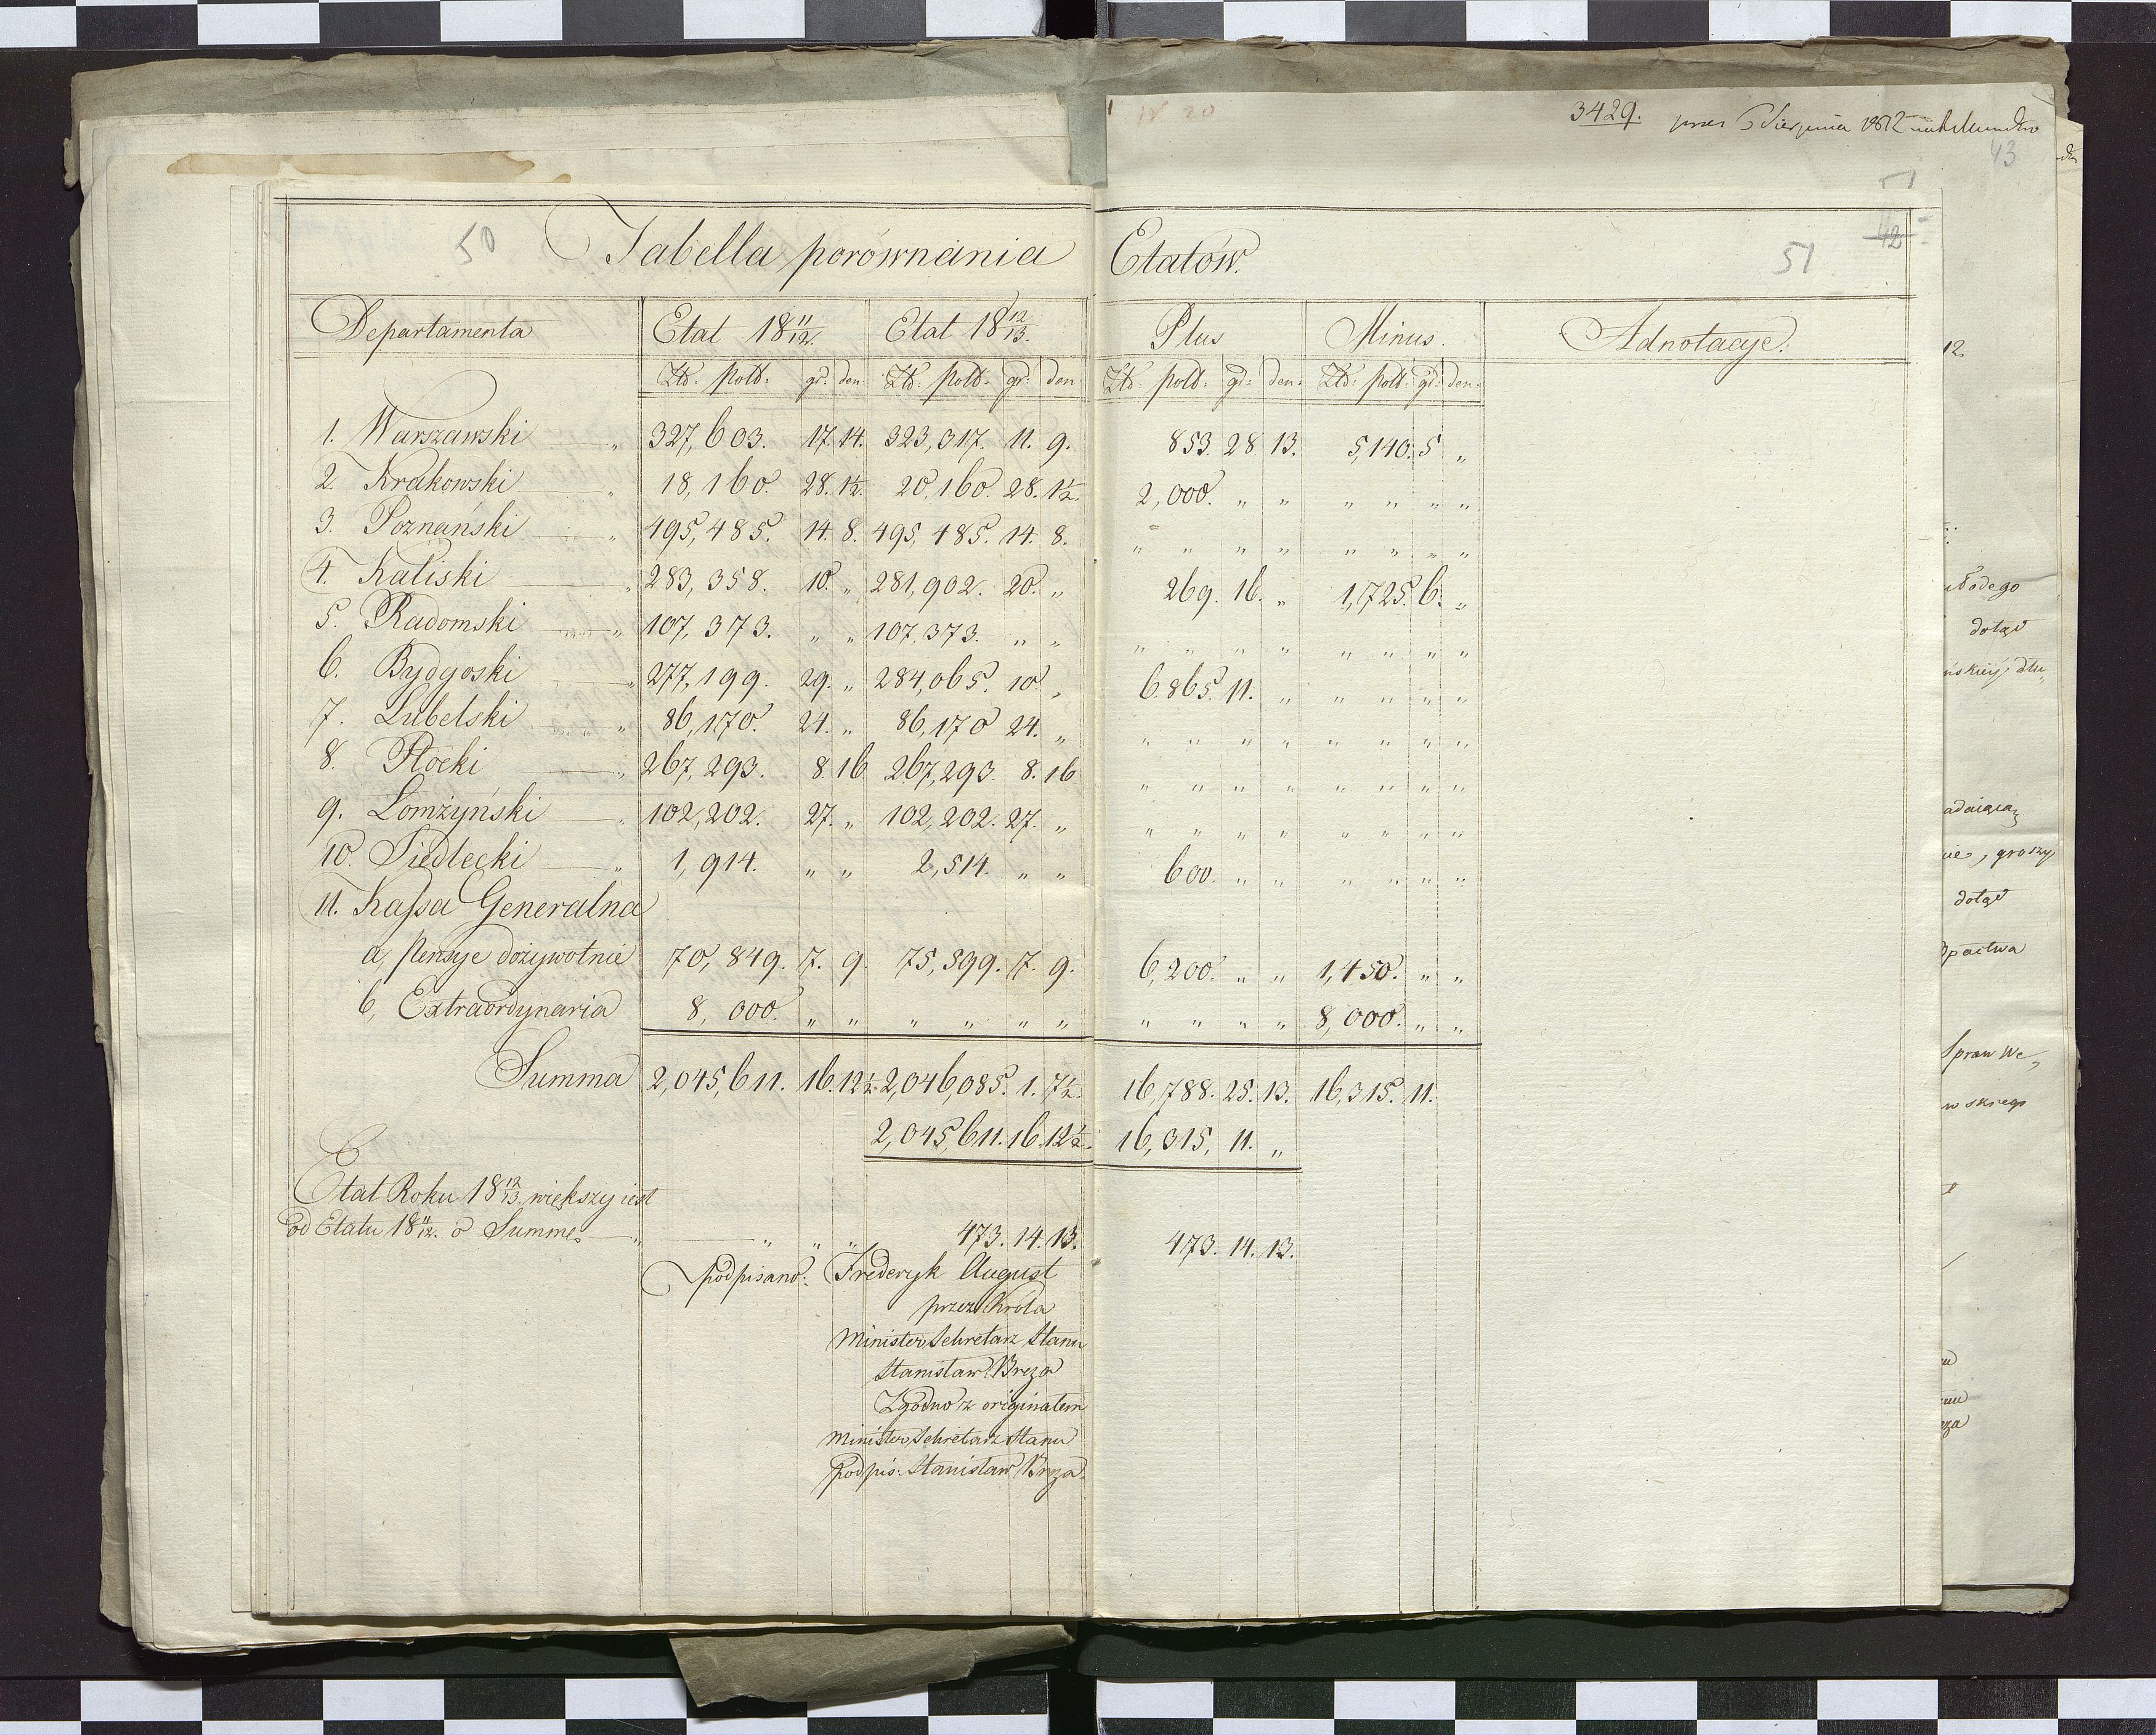 3429.
43
51
42
50 Tabella porównania Etatów. 51
Departamenta Etat 18 11/12. Etat 18 12/13. Plus Minus. Adnotacye.
Złd. pold: gr: den: Złd. pold: gr: den: Złd: pold: gr: den: Złd: pold: gr: den:
1. Warszawski „ 327,603. 17. 14. 323,317. 11. 9. 853. 28. 13. 5,140. 5 „
2. Krakowski „ 18,160. 28. 1½. 20,160. 28. 1½. 2,000. „ „ „ „ „ „
3. Poznański „ 495,485. 14. 8. 495,485. 14. 8. „ „ „ „ „ „ „ „
4. Kaliski „ 283,358. 10. „ 281,902. 20. „ 269. 16. „ 1,725. 6. „
5. Radomski „ 107,373. „ „ 107,373. „ „ „ „ „ „ „ „ „ „
6. Bydgoski „ 277,199. 29. „ 284,065. 10. „ 6,865. 11. „ „ „ „ „
7. Lubelski „ 86,170. 24. „ 86,170 24. „ „ „ „ „ „ „ „ „
8. Płocki „ 267,293. 8. 16 267,293. 8. 16 „ „ „ „ „ „ „ „
9. Lomżyński „ 102,202. 27. „ 102,202. 27. „ „ „ „ „ „ „ „ „
10. Siedlecki „ 1,914. „ „ 2,514. „ „ 600. „ „ „ „ „ „
11. Kassa Generalna
a, Pensye dożywotnie 70,849. 7. 9. 75,599. 7. 9. 6,200. „ „ 1,450. „ „
b, Extraordynaria 8,000. „ „ „ „ „ „ „ „ „ „ 8,000. „ „
Summa 2,045,611. 16. 12½. 2,046,085. 1. 7½. 16,788. 25. 13. 16,315. 11.
2,045,611. 16. 12½. 16,315. 11. „
Etat Roku 18 12/13 większy iest
od Etatu 18 11/12. o Summę „ „ „ „ 473. 14. 13. 473. 14. 13.
podpisano: Frederyk August
przez Króla
Minister Sekretarz Stanu
Stanisław Breza
Zgodno z originałem
Minister Sekretarz Stanu
podpis: Stanisław Breza.
12
dotąd
groszy
dotąd
Spraw We„